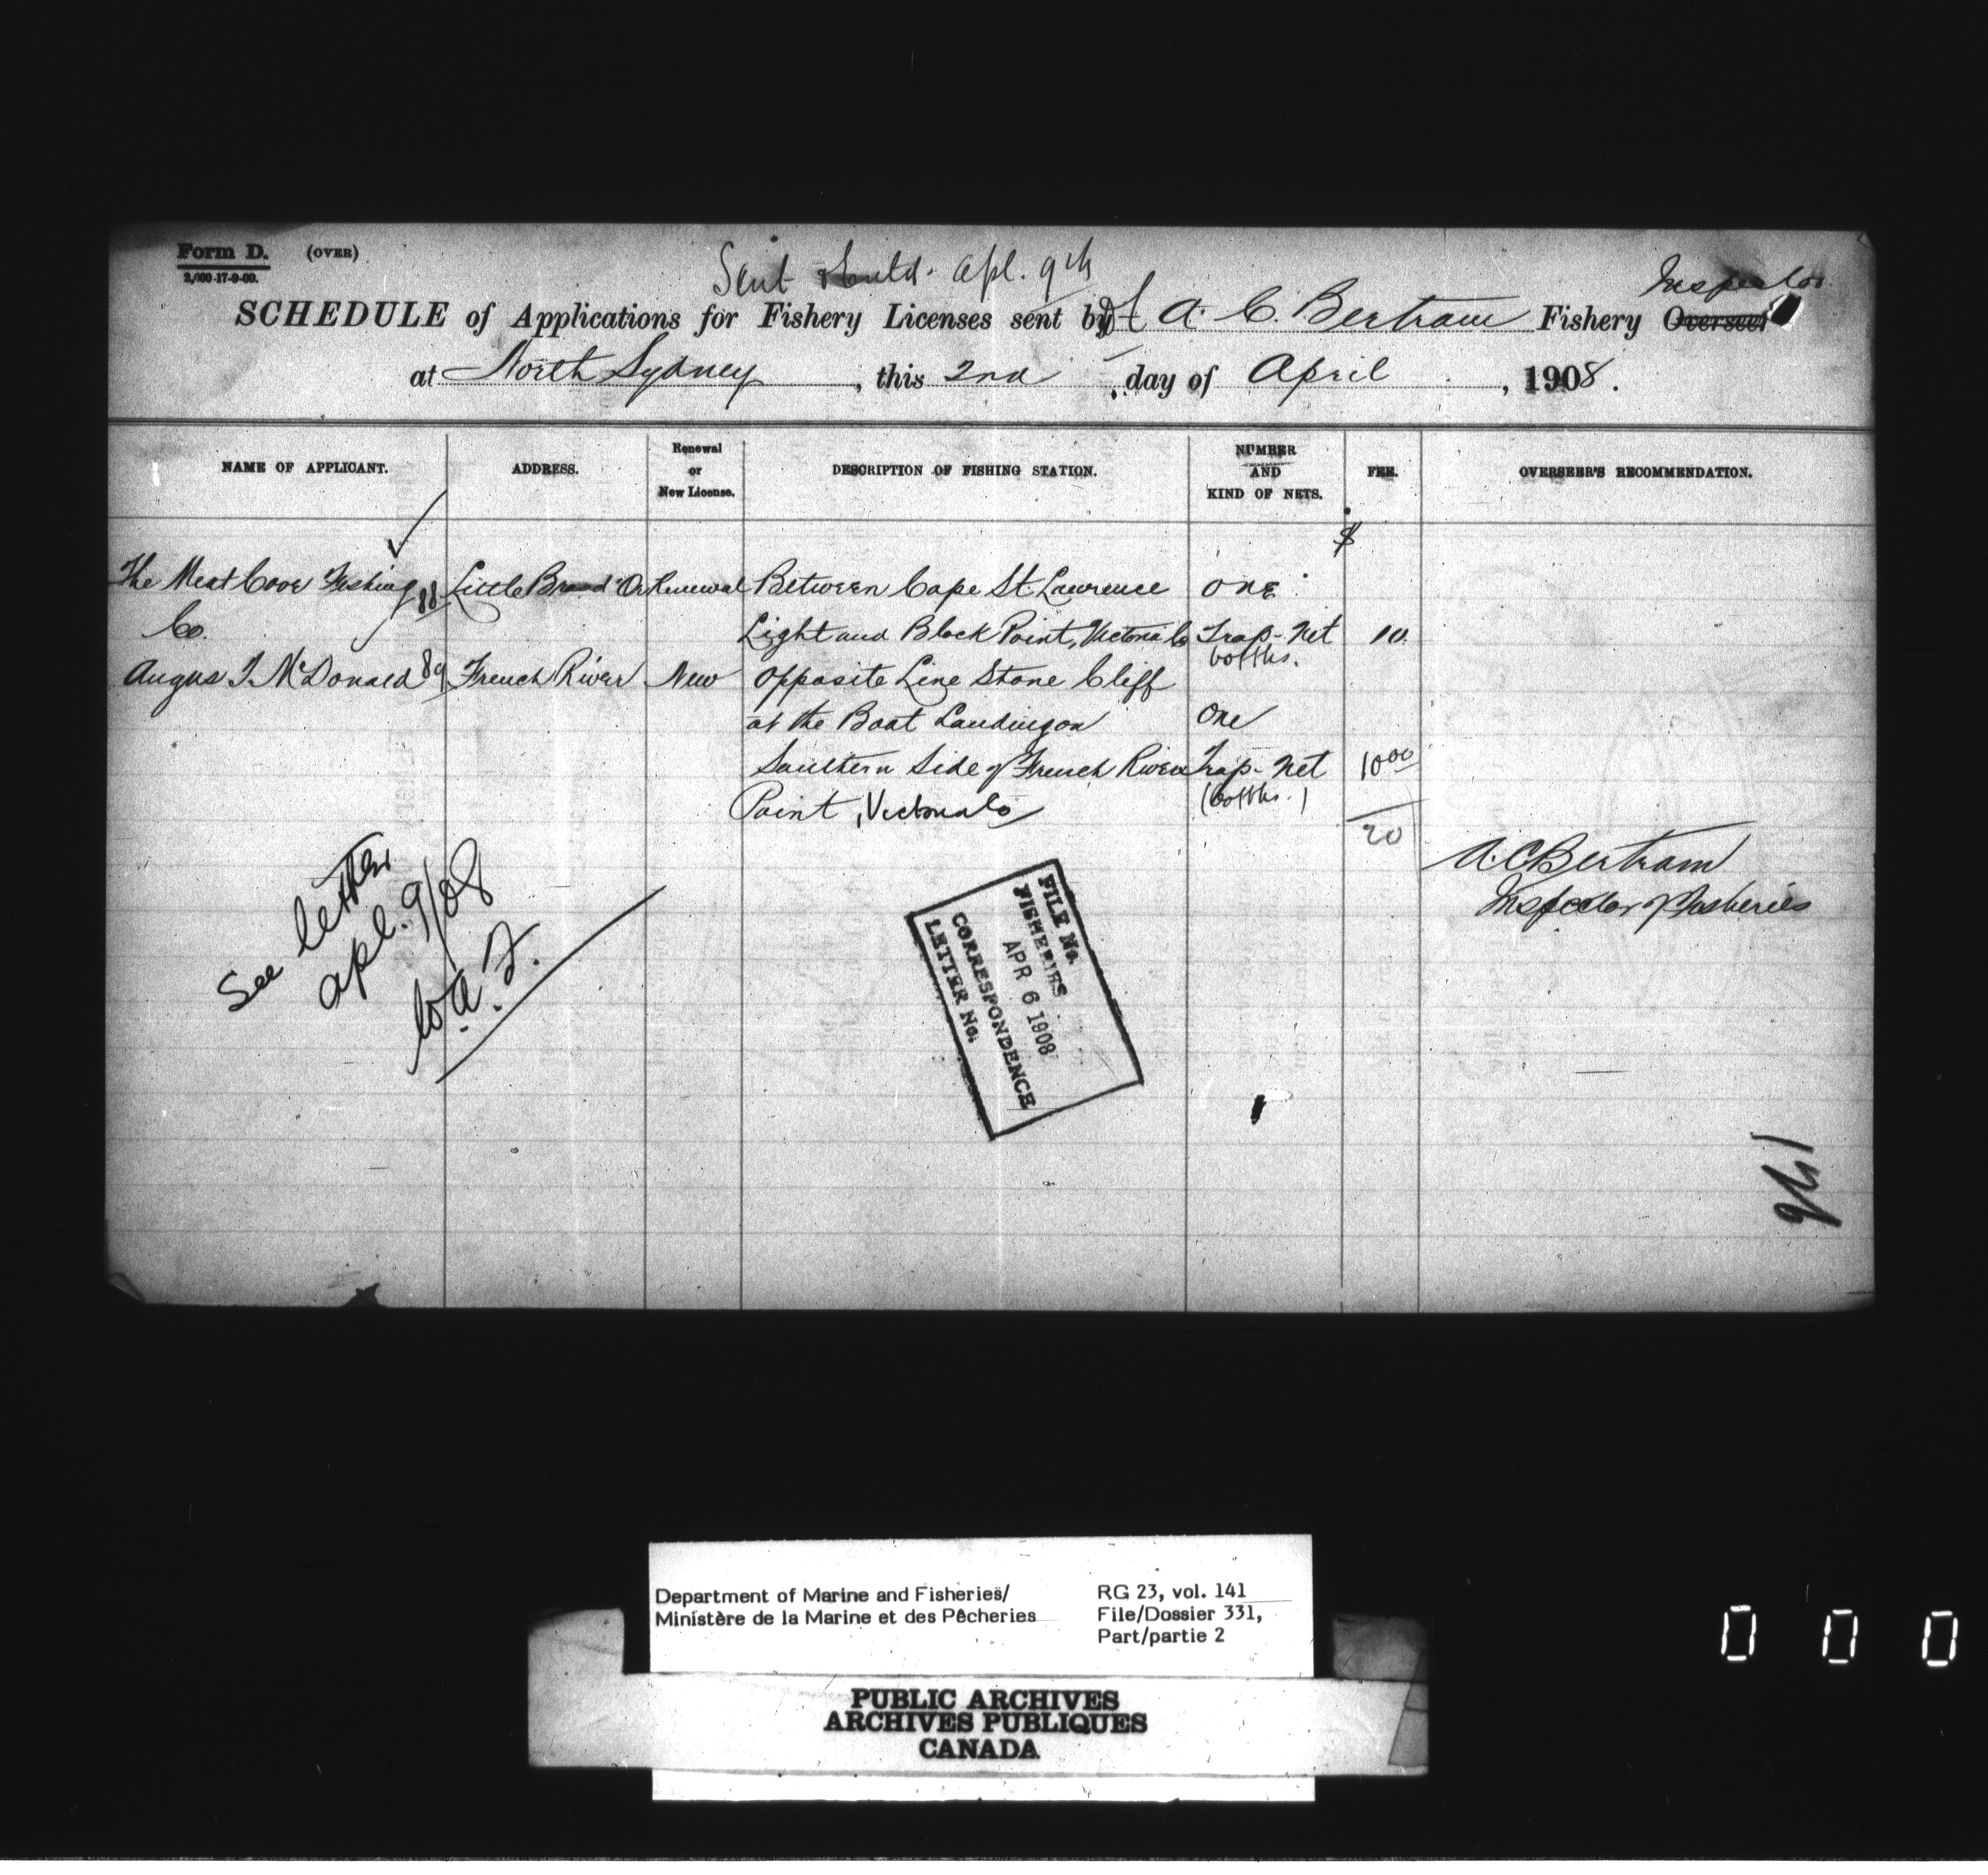 Form D. (OVER)
2,000-17-9-00.
Sent apl. 9th
Inspector
SCHEDULE of Applications for Fishery Licenses sent by A. C. Bertram Fishery Overseer
at North Sydney, this 2nd day of April, 1908.
NAME OF APPLICANT. ADDRESS. Renewal or New License. DESCRIPTION OF FISHING STATION. NUMBER AND KIND OF NETS. FEE. OVERSEER'S RECOMMENDATION.
$
The Meat Cove Fishing 88 Little Brasd'Or Renewal Between Cape St. Lawrence One
Co. Light and Black Point, Victoria Co Trap-Net 10.
60 fths.
Angus J. McDonald 89 French River New Opposite Lime Stone Cliff
at the Boat Landing on One
Southern Side of French River Trap-Net 10.00
Point, Victoria Co (60 fths.)
20
A. C. Bertram
Inspector of Fisheries
See letter
apl. 9/08
FILE No.
FISHERIES
APR 6 1908
CORRESPONDENCE
LETTER No.
Department of Marine and Fisheries/
Ministère de la Marine et des Pêcheries
RG 23, vol. 141
File/Dossier 331,
Part/partie 2
PUBLIC ARCHIVES
ARCHIVES PUBLIQUES
CANADA
0 0 0